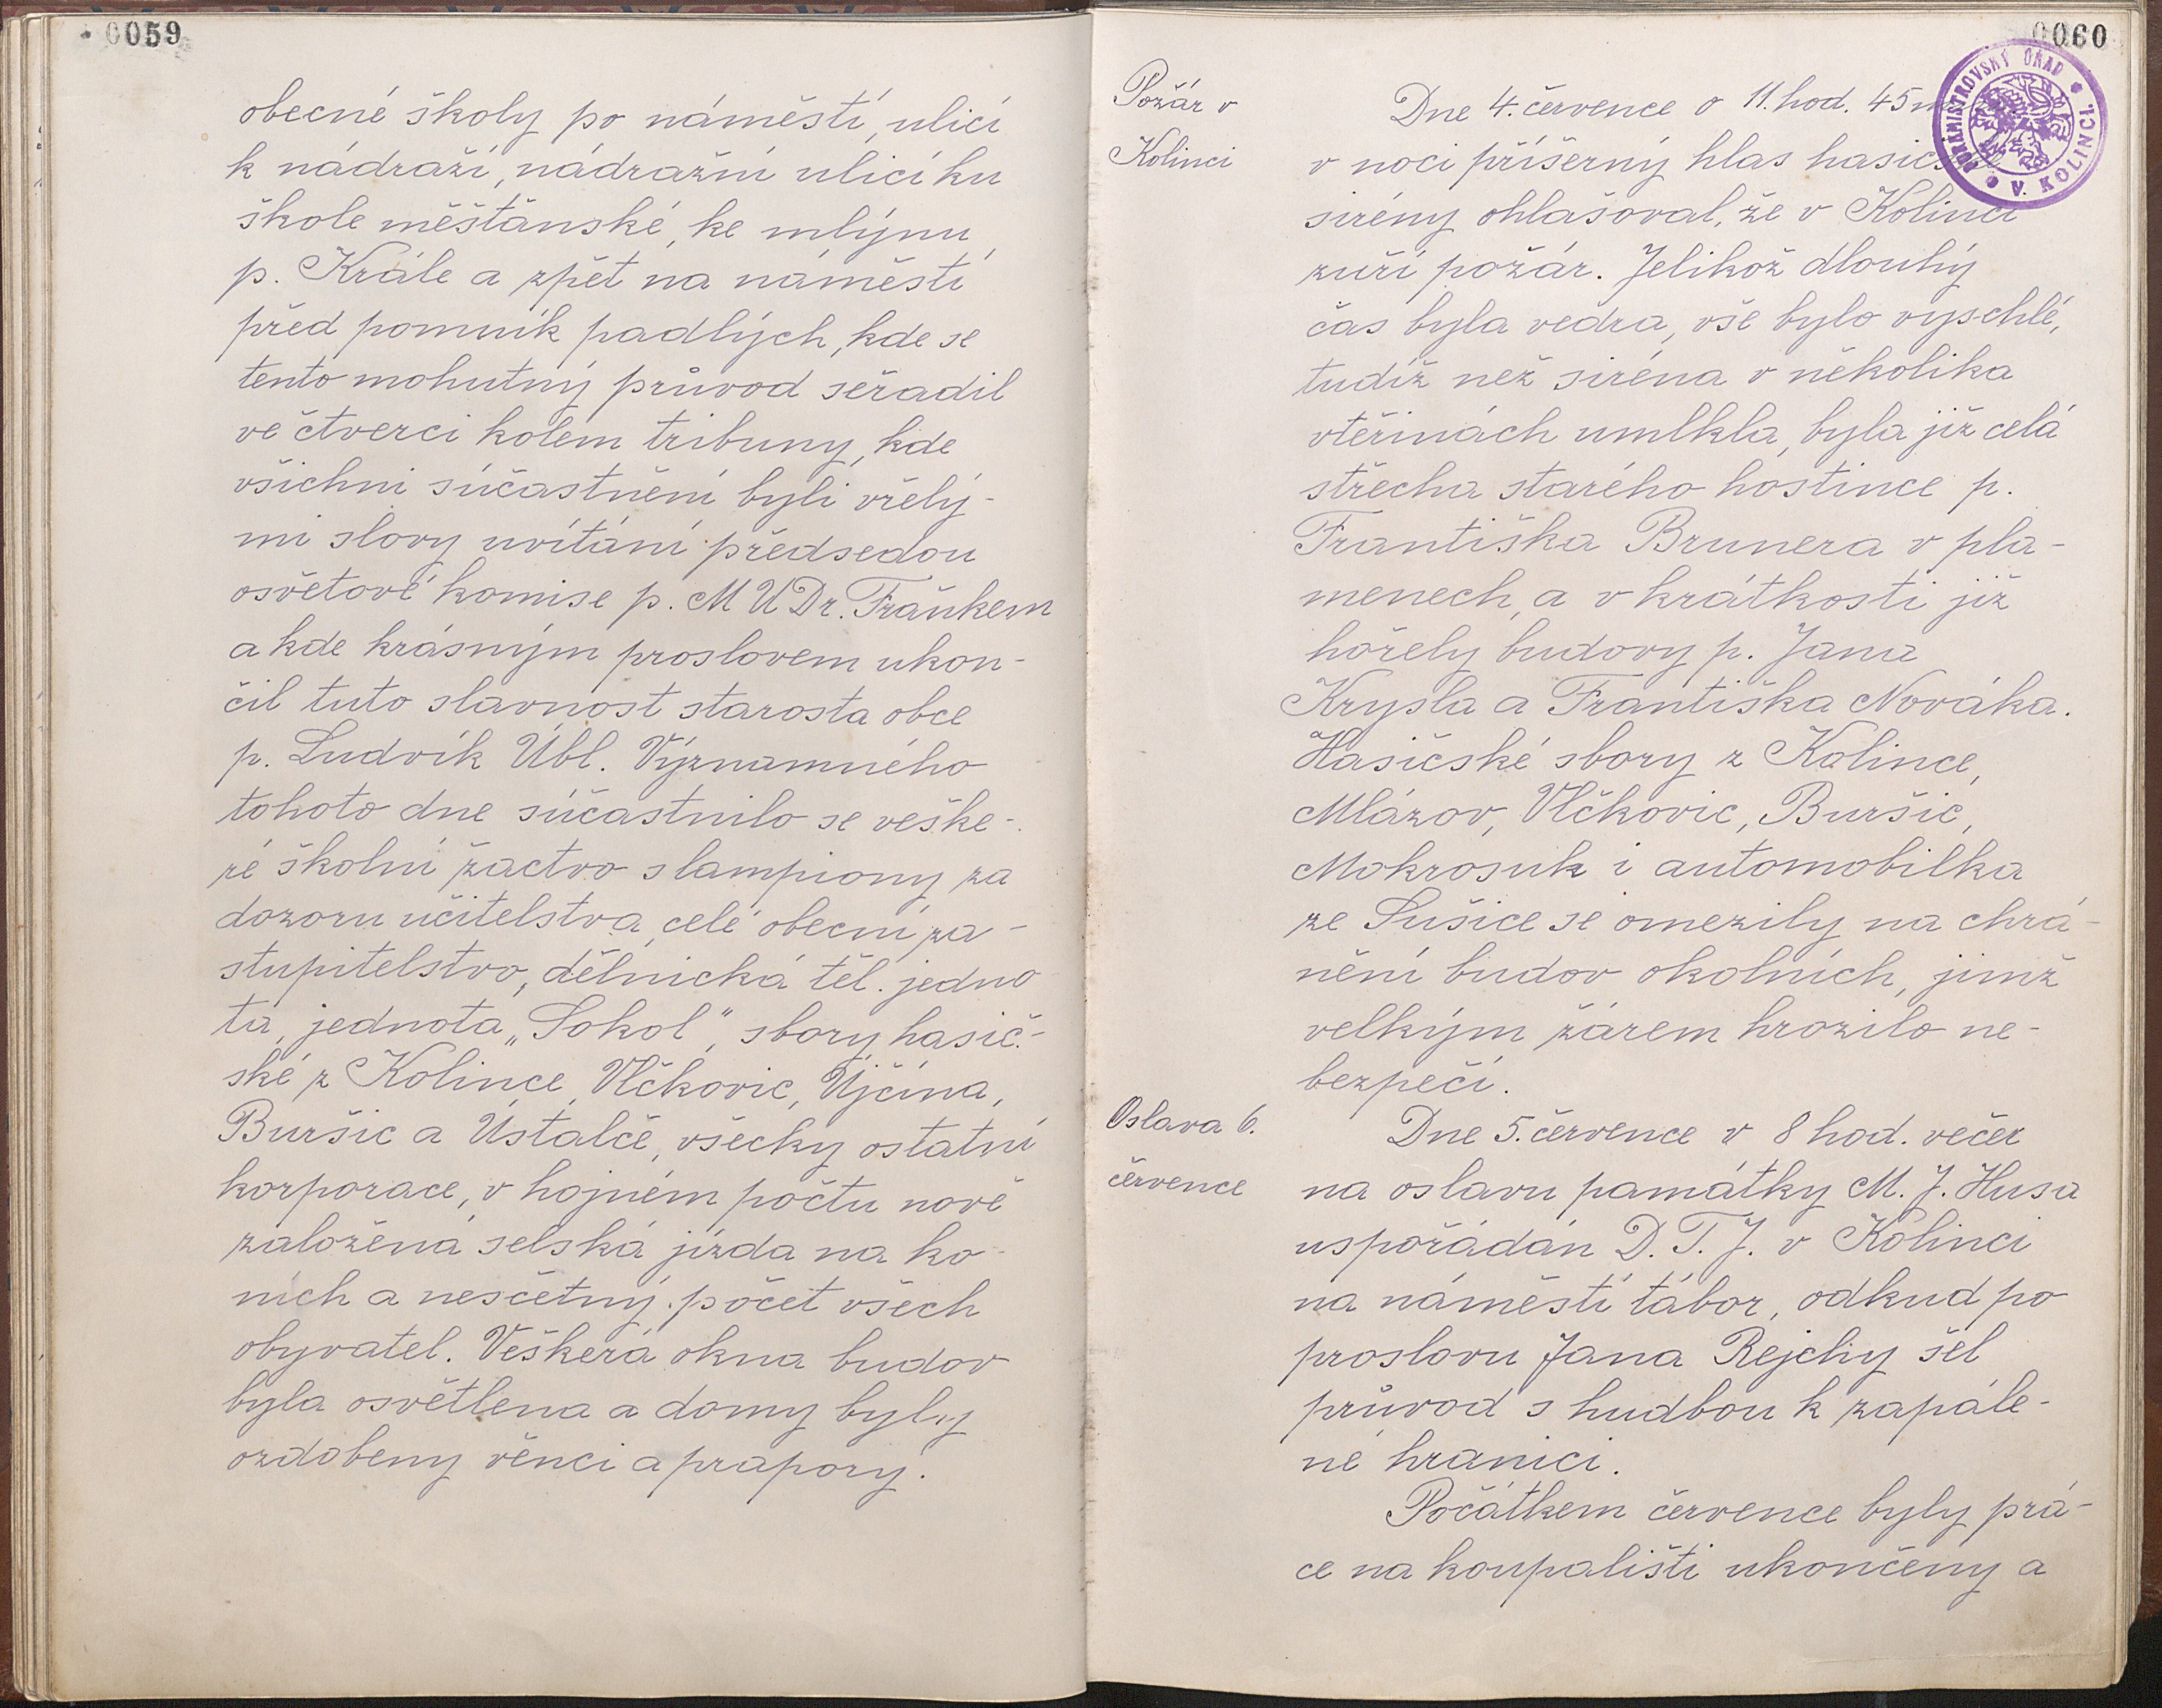 0059
obecné školy po náměstí, ulicí
k nádraží, nádražní ulicí ku
škole měšťanské, ke mlýnu
p. Krále a zpět na náměstí
před pomník padlých, kde se
tento mohutný průvod seřadil
ve čtverci kolem tribuny, kde
všichni súčastnění byli vřelý-
mi slovy uvítáni předsedou
osvětové komise p. MUDr. Fraňkem
a kde krásným proslovem ukon-
čil tuto slavnost starosta obce
p. Ludvík Übl. Významného
tohoto dne súčastnilo se veške-
ré školní žactvo s lampiony za
dozoru učitelstva, celé obecní za-
stupitelstvo, dělnická těl. jedno
ta, jednota „Sokol“, sbory hasič-
ské z Kolince, Vlčkovic, Ujčína,
Buršic a Ústalče, všecky ostatní
korporace, v hojném počtu nově
založená selská jízda na ko-
ních a nesčetný počet všech
obyvatel. Veškerá okna budov
byla osvětlena a domy byly
ozdobeny věnci a prapory.
0060
PURKMISTROVSKÝ ÚŘAD V KOLINCI
Požár v
Kolinci
Dne 4. července o 11. hod. 45
v noci příšerný hlas
sirény ohlašoval, že v Kolinci
zuří požár. Jelikož dlouhý
čas byla vedra, vše bylo vyschlé,
tudíž než siréna v několika
vteřinách umlkla, byla již celá
střecha starého hostince p.
Františka Brunera v pla-
menech, a v krátkosti již
hořely budovy p. Jana
Krysla a Františka Nováka.
Hasičské sbory z Kolince,
Mlázov, Vlčkovic, Buršic,
Mokrosuk i automobilka
ze Sušice se omezily na chrá-
nění budov okolních, jimž
velkým žárem hrozilo ne-
bezpečí.
Oslava 6.
července
Dne 5. července v 8 hod. večer
na oslavu památky M. J. Husa
uspořádán D. T. J. v Kolinci
na náměstí tábor, odkud po
proslovu Jana Rejchy šel
průvod s hudbou k zapále-
né hranici.
Počátkem července byly prá-
ce na koupališti ukončeny a